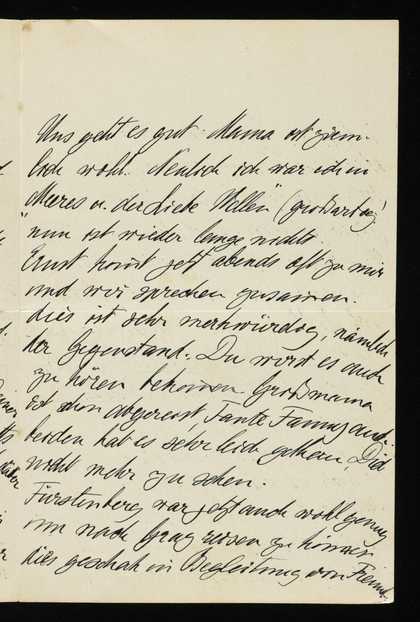 Uns geht es gut. Mama ist ziem-
lich wohl. Neulich ich war ich in
"Meeres u. der Liebe Wellen" (großartig)
nun ist wieder lange nichts.
Ernst kommt jetzt abends oft zu mir
und wir sprechen zusammen.
dies ist sehr merkwürdig, nämlich
der Gegenstand. Du wirst es auch
zu hören bekommen. Großmama
ist schon abgereist, Tante Fanny auch.
beiden hat es sehr leid gethan, Dich
nicht mehr zu sehen.
Fürstenberg war jetzt auch wohl genug
um nach reisen zu können
dies geschah in Begleitung von